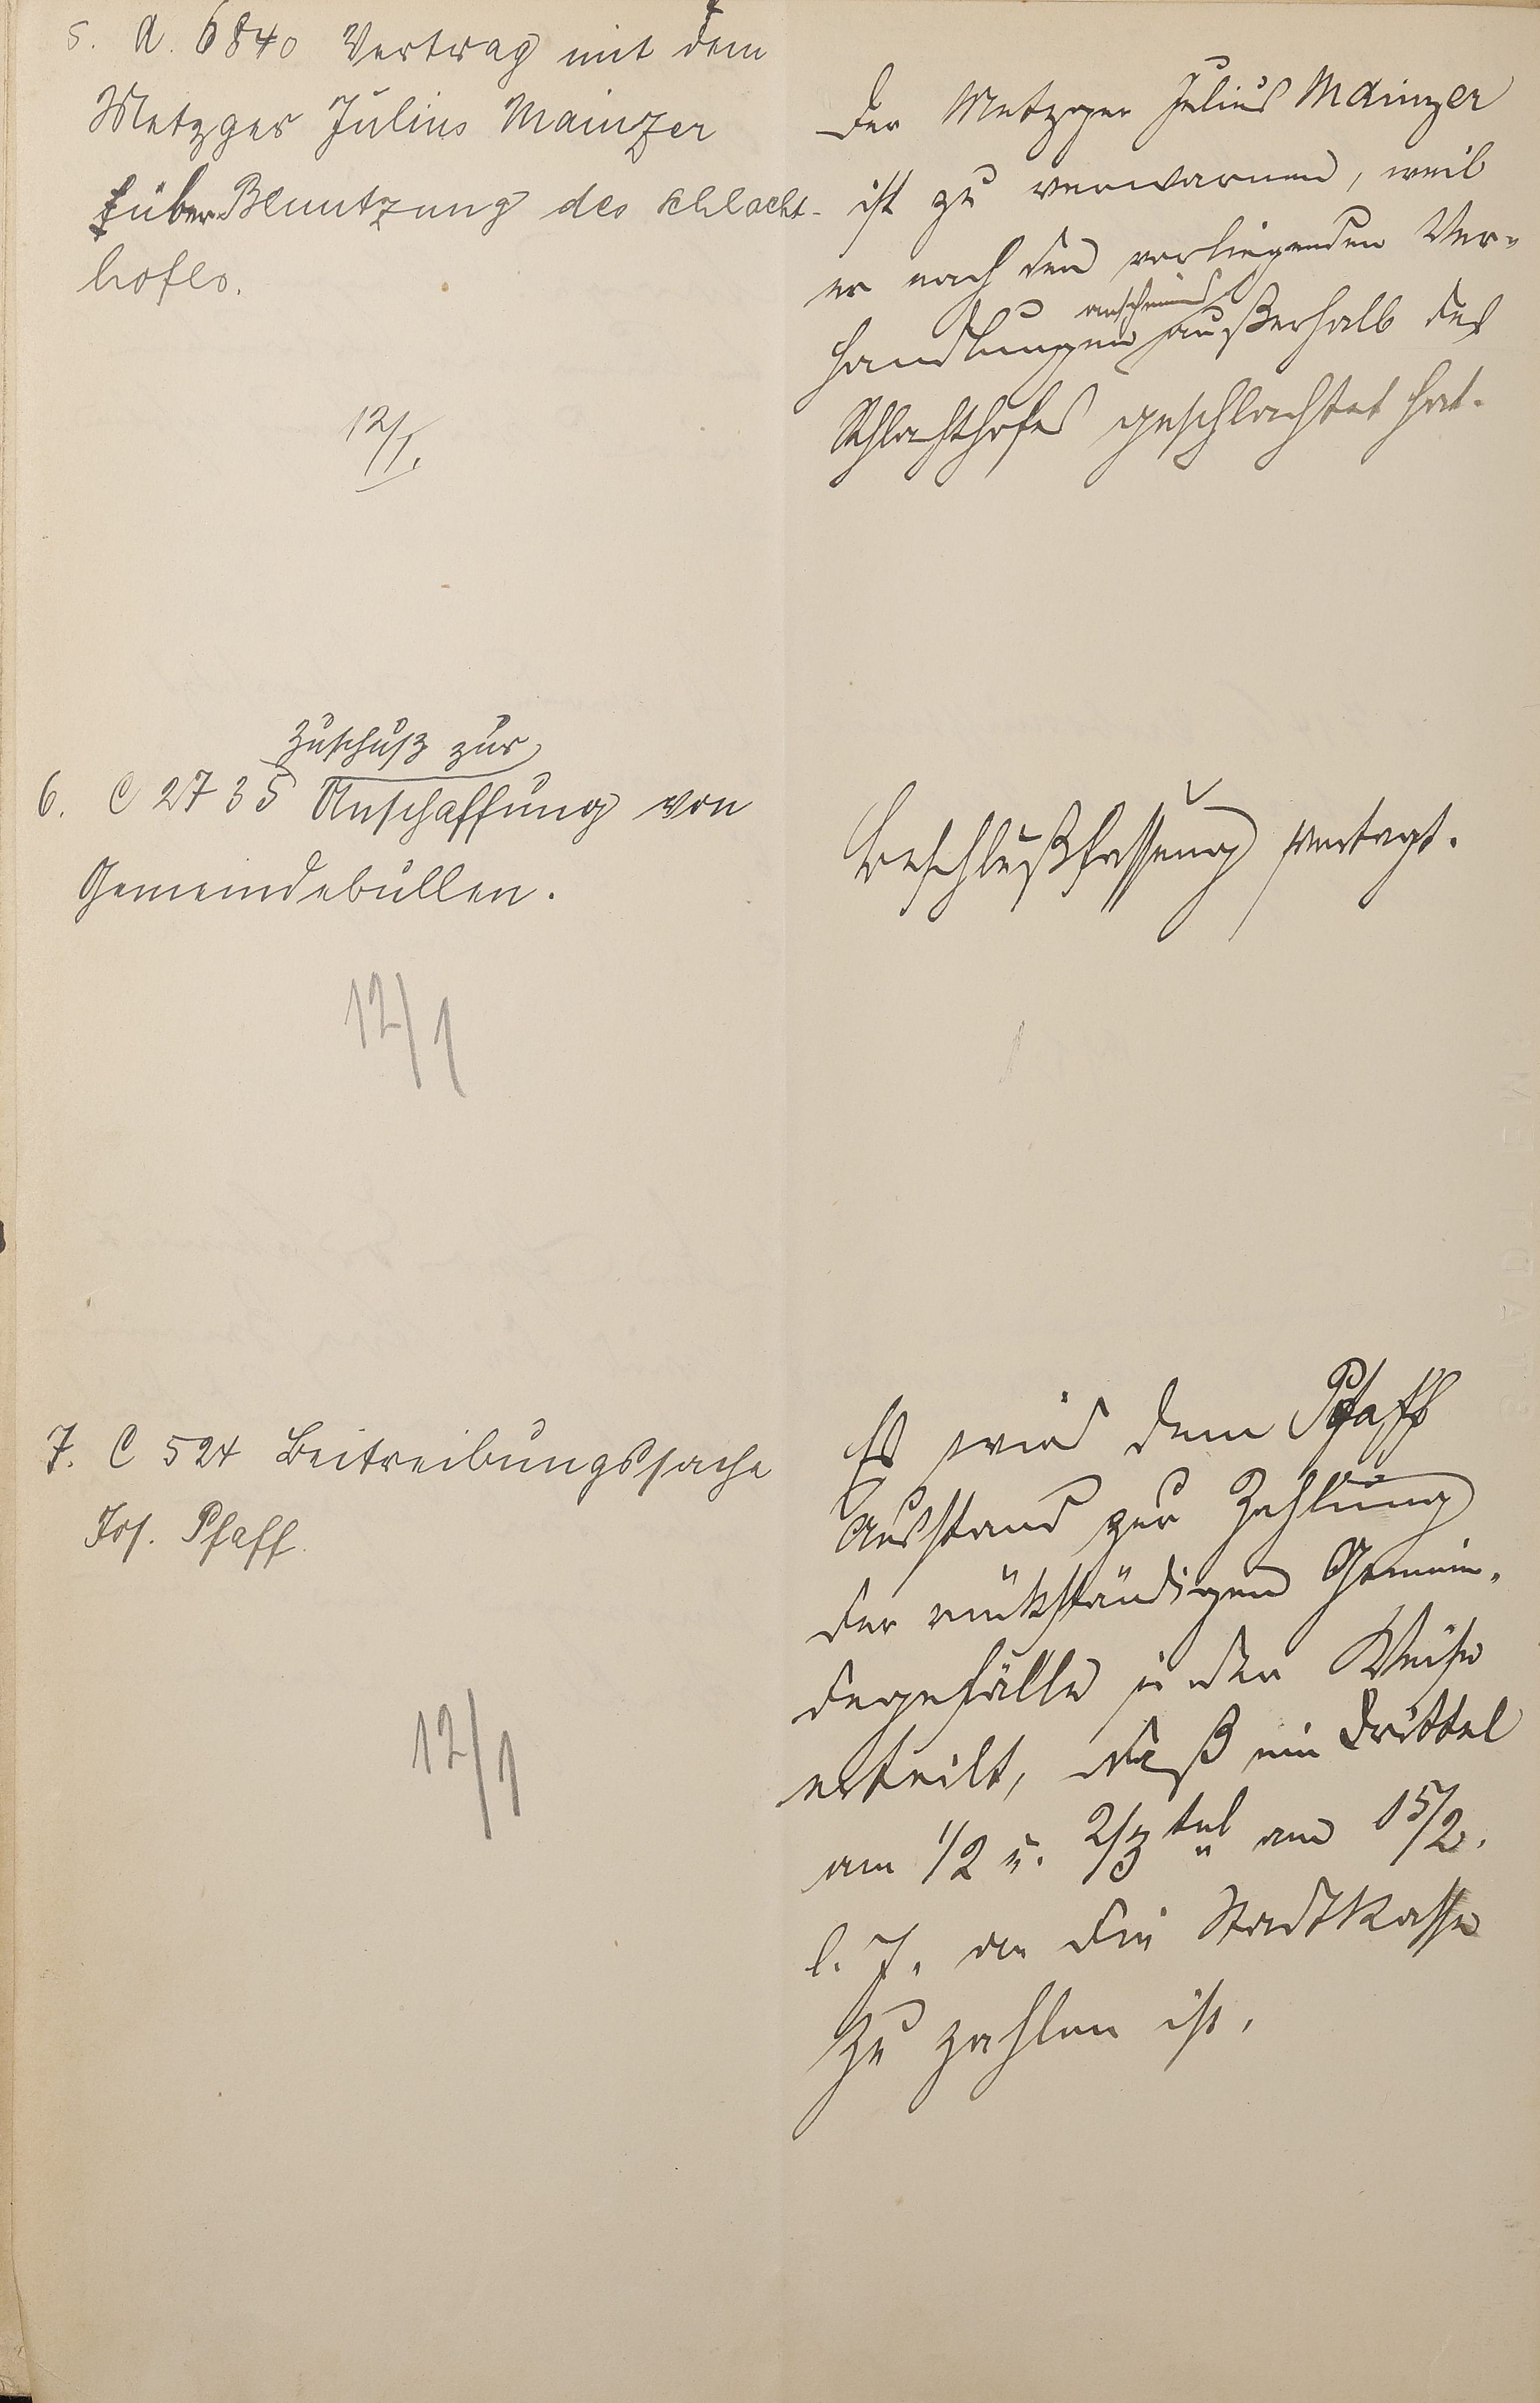 5. A. 6840 Vertrag mit dem
Metzger Julius Mainzer
über Benutzung des Schlacht-
hofes.
12/1.
Der Metzger Julius Mainzer
ist zu verwarnen, weil
er nach den vorliegenden Ver-
anscheinend
handlungen außerhalb des
Schlachthofes geschlachtet hat.
Zuschuß zur
6. C 2735 Anschaffung von
Gemeindebullen.
12/1
Beschlußfassung vertagt.
7. C 524 Beitreibungssache
Jos. Pfaff.
12/1
Es wird dem Pfaff
Ausstand zur Zahlung
der rückständigen Gemein-
degefälle in der Weise
erteilt, daß ein Drittel
am 1/2 u. 2/3 tel am 15/2.
l. J. an die Stadtkasse
zu zahlen ist.